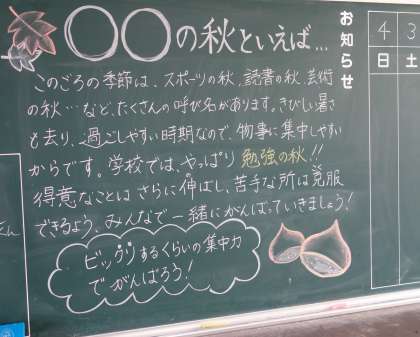 ○○の秋といえば…
このごろの季節は、スポーツの秋、読書の秋、芸術
の秋…など、たくさんの呼び名があります。きびしい暑さ
も去り、過ごしやすい時期なので、物事に集中しやすい
からです。学校では、やっぱり勉強の秋!!
得意なことはさらに伸ばし、苦手な所は克服
できるよう、みんなで一緒にがんばっていきましょう!
ビックリするくらいの集中力
でがんばろう!
お知らせ
4 3
日 土